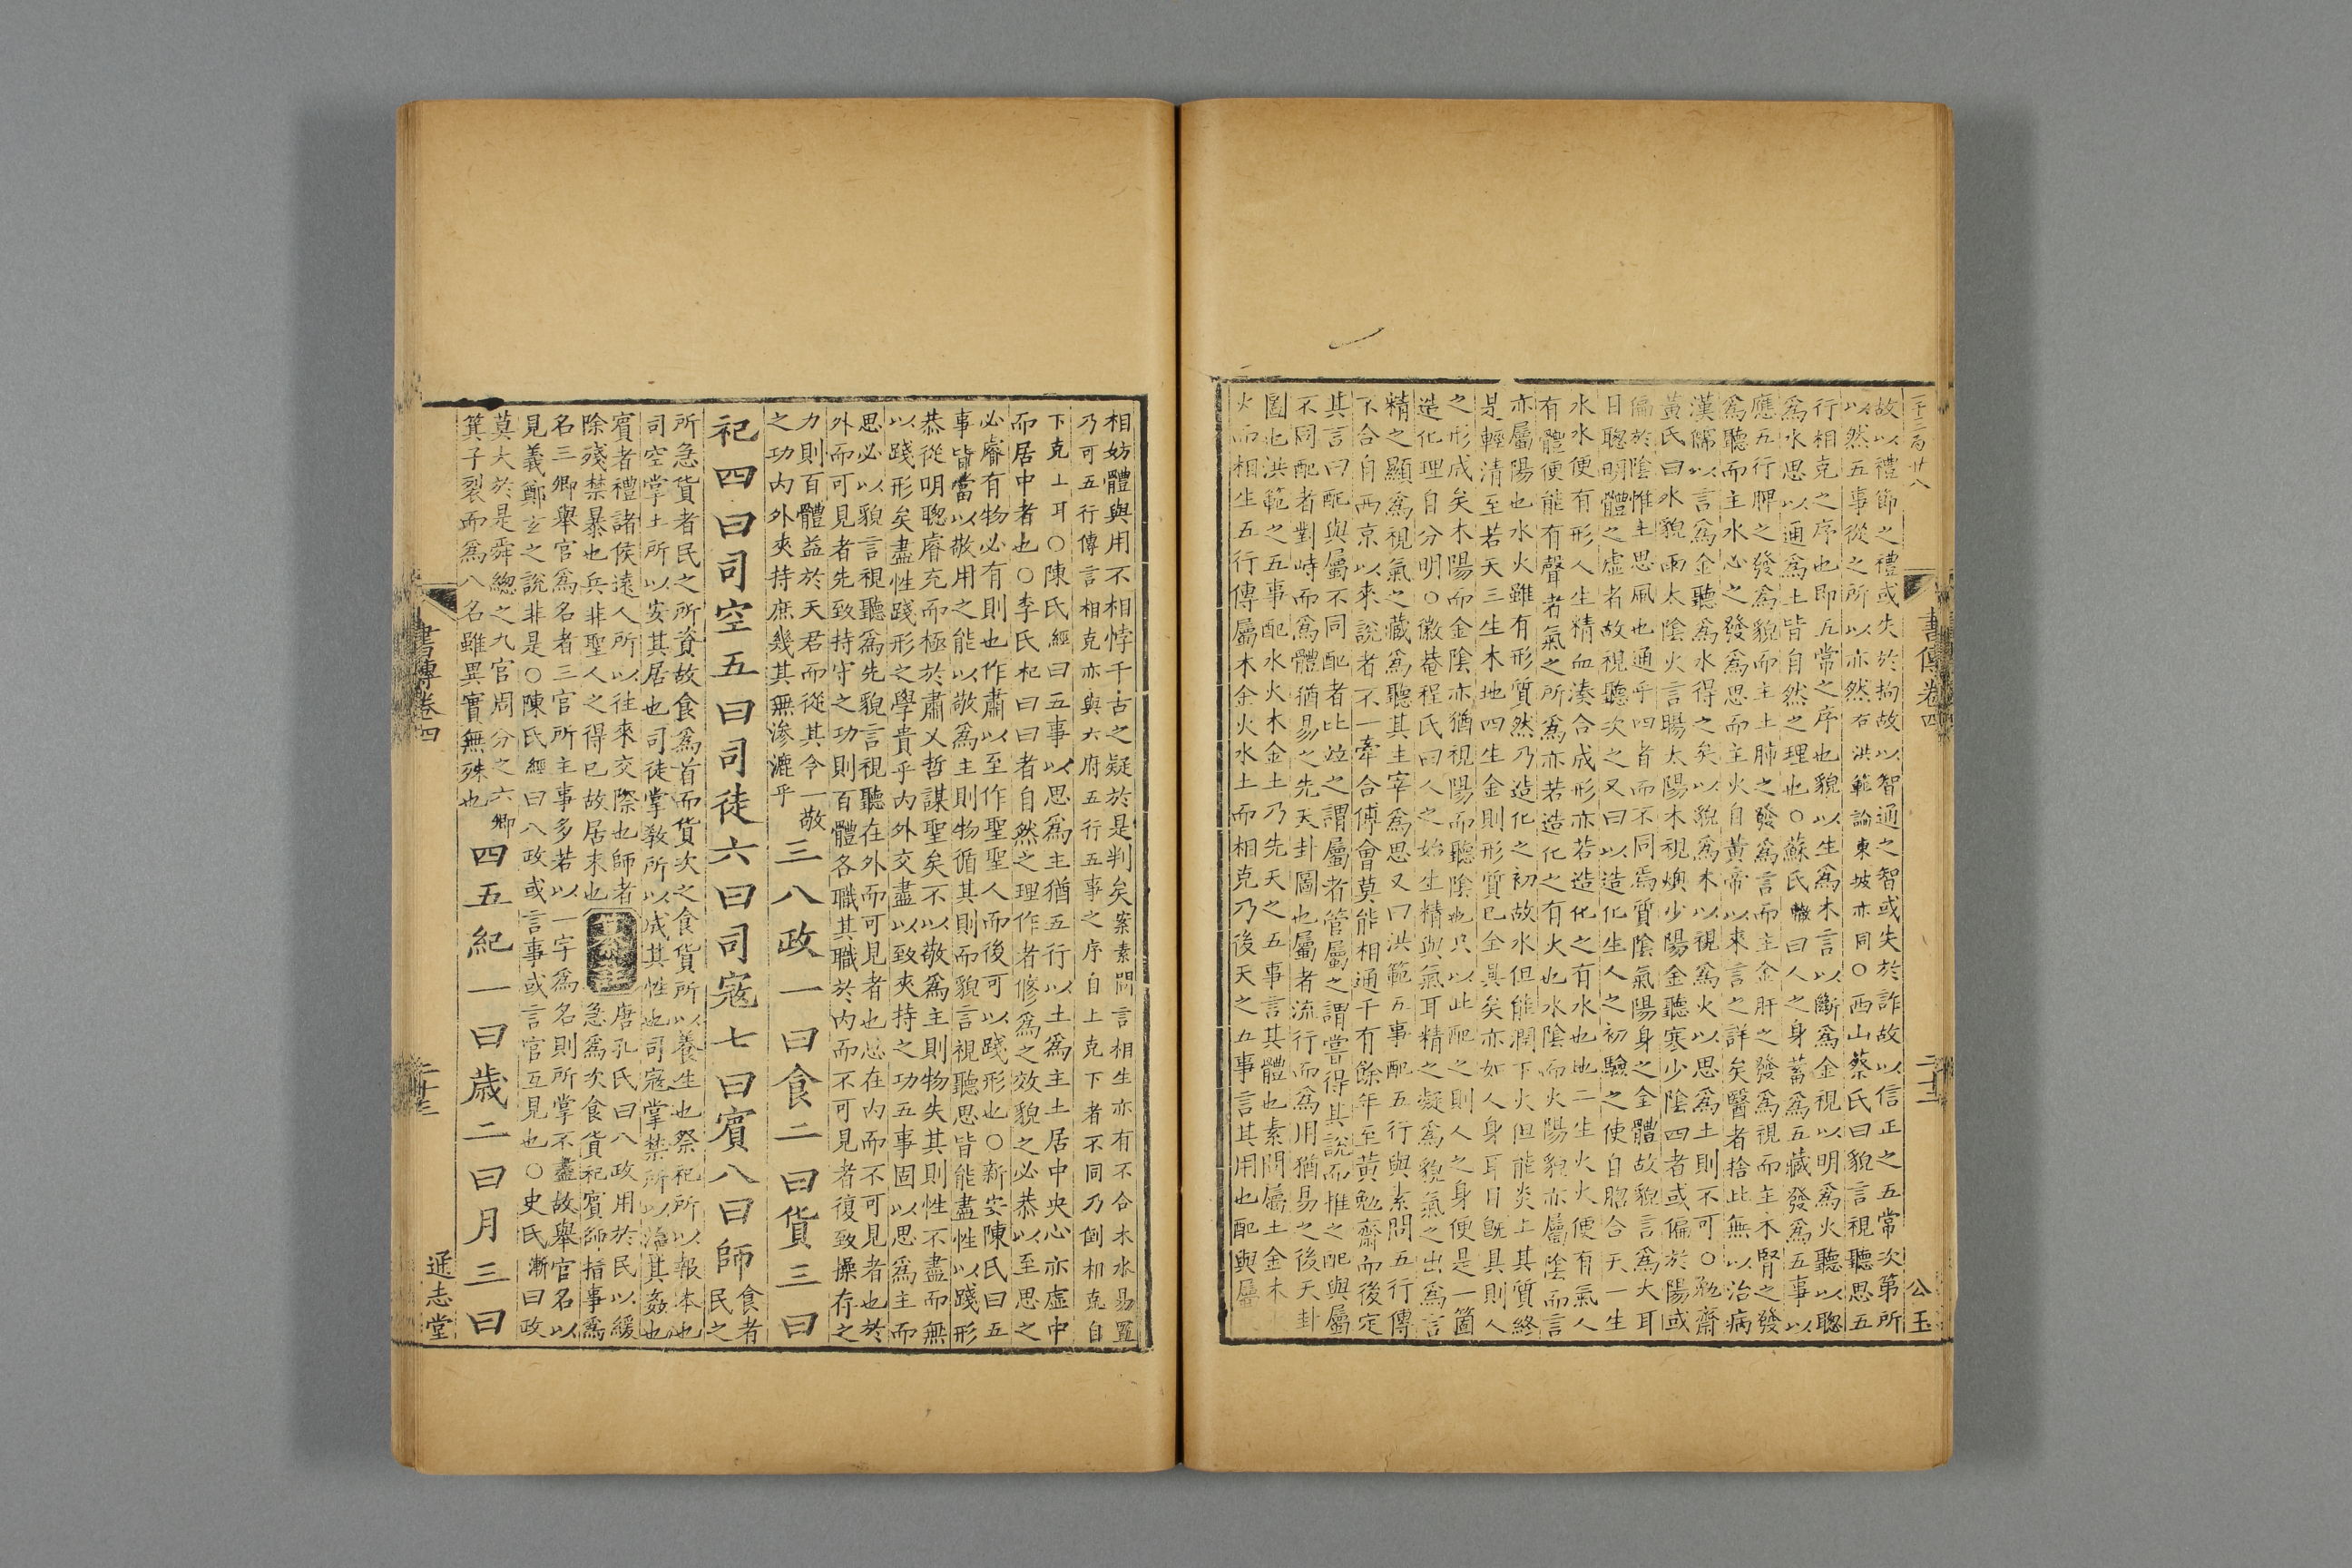 故以禮節之禮或失於拘故以智通之智或失於詐故以信正之五常次第所
以然五事從之所以亦然右洪範論東坡亦同○西山蔡氏曰貌言視聽思五
行相克之序也即五常之序也貌以生爲木言以斷爲金視以明爲火聽以聰
爲水思以通爲土皆自然之理也○蘇氏轍曰人之身蓄爲五藏發爲五事以
應五行脾之發爲貌而主土肺之發爲言而主金肝之發爲視而主木腎之發
爲聽而主水心之發爲思而主火自黃帝以來言之詳矣醫者捨此無以治病
漢儒以言爲金聽爲水得之矣以貌爲木以視爲火以思爲土則不可○勉齋
黃氏曰水貌雨太陰火言暘太陽木視燠少陽金聽寒少陰四者或偏於陽或
偏於陰惟主思風也通乎四者而不同焉質陰氣陽身之全體故貌言爲大耳
目聰明體之虛者故視聽次之又曰以造化生人之初驗之便自脗合天一生
水水便有形人生精血湊合成形亦若造化之有水也地二生火火便有氣人
有體便能有聲者氣之所爲亦若造化之有火也水陰而火陽貌亦屬陰而言
亦屬陽也水火雖有形質然乃造化之初故水但能潤下火但能炎上其質終
是輕清至若天三生木地四生金則形質已全具矣亦如人身耳目旣具則人
之形成矣木陽而金陰亦猶視陽而聽陰也只以此配之則人之身便是一箇
造化理自分明○徽菴程氏曰人之始生精與氣耳精之凝爲貌氣之出爲言
精之顯爲視氣之藏爲聽其主宰爲思又曰洪範五事配五行與素問五行傳
不合自兩京以來說者不一牽合傅會莫能相通千有餘年至黃勉齋而後定
其言曰配與屬不同配者比竝之謂屬者管屬之謂嘗得其說而推之配與屬
不同配者對峙而爲體猶易之先天卦圖也屬者流行而爲用猶易之後天卦
圖也洪範之五事配水火木金土乃先天之五事言其體也素問屬土金木
火而相生五行傳屬木金火水土而相克乃後天之五事言其用也配與屬
書傳卷四
二十二
公玉
相妨體與用不相悖千古之疑於是判矣案素問言相生亦有不合木水易置
乃可五行傳言相克亦與六府五行五事之序自上克下者不同乃倒相克自
下克上耳○陳氏經曰五事以思爲主猶五行以土爲主土居中央心亦虛中
而居中者也○李氏杞曰曰者自然之理作者修爲之效貌之必恭以至思之
必睿有物必有則也作肅以至作聖聖人而後可以踐形也○新安陳氏曰五
事皆當以敬用之能以敬爲主則物循其則而貌言視聽思皆能盡性以踐形
恭從明聰睿充而極於肅乂哲謀聖矣不以敬爲主則物失其則性不盡而無
以踐形矣盡性踐形之學貴乎內外交盡以致夾持之功五事固以思爲主而
思必以貌言視聽爲先貌言視聽在外而可見者也思在內而不可見者也於
外而可見者先致持守之功則百體各職其職於內而不可見者復致操存之
力則百體益於天君而從其令一敬
之功內外夾持庶幾其無滲漉乎
三八政一曰食二曰貨三曰
祀四曰司空五曰司徒六曰司寇七曰賓八曰師
食者
民之
所急貨者民之所資故食爲首而貨次之食貨所以養生也祭祀所以報本也
司空掌土所以安其居也司徒掌敎所以成其性也司寇掌禁所以治其姦也
賓者禮諸侯遠人所以往來交際也師者
除殘禁暴也兵非聖人之得已故居末也
唐孔氏曰八政用於民以緩
急爲次食貨祀賓師指事爲
名三卿舉官爲名者三官所主事多若以一字爲名則所掌不盡故舉官名以
見義鄭玄之說非是○陳氏經曰八政或言事或言官互見也○史氏漸曰政
莫大於是舜總之九官周分之六卿
箕子裂而爲八名雖異實無殊也
四五紀一曰歲二曰月三曰
書傳卷四
二十三
通志堂